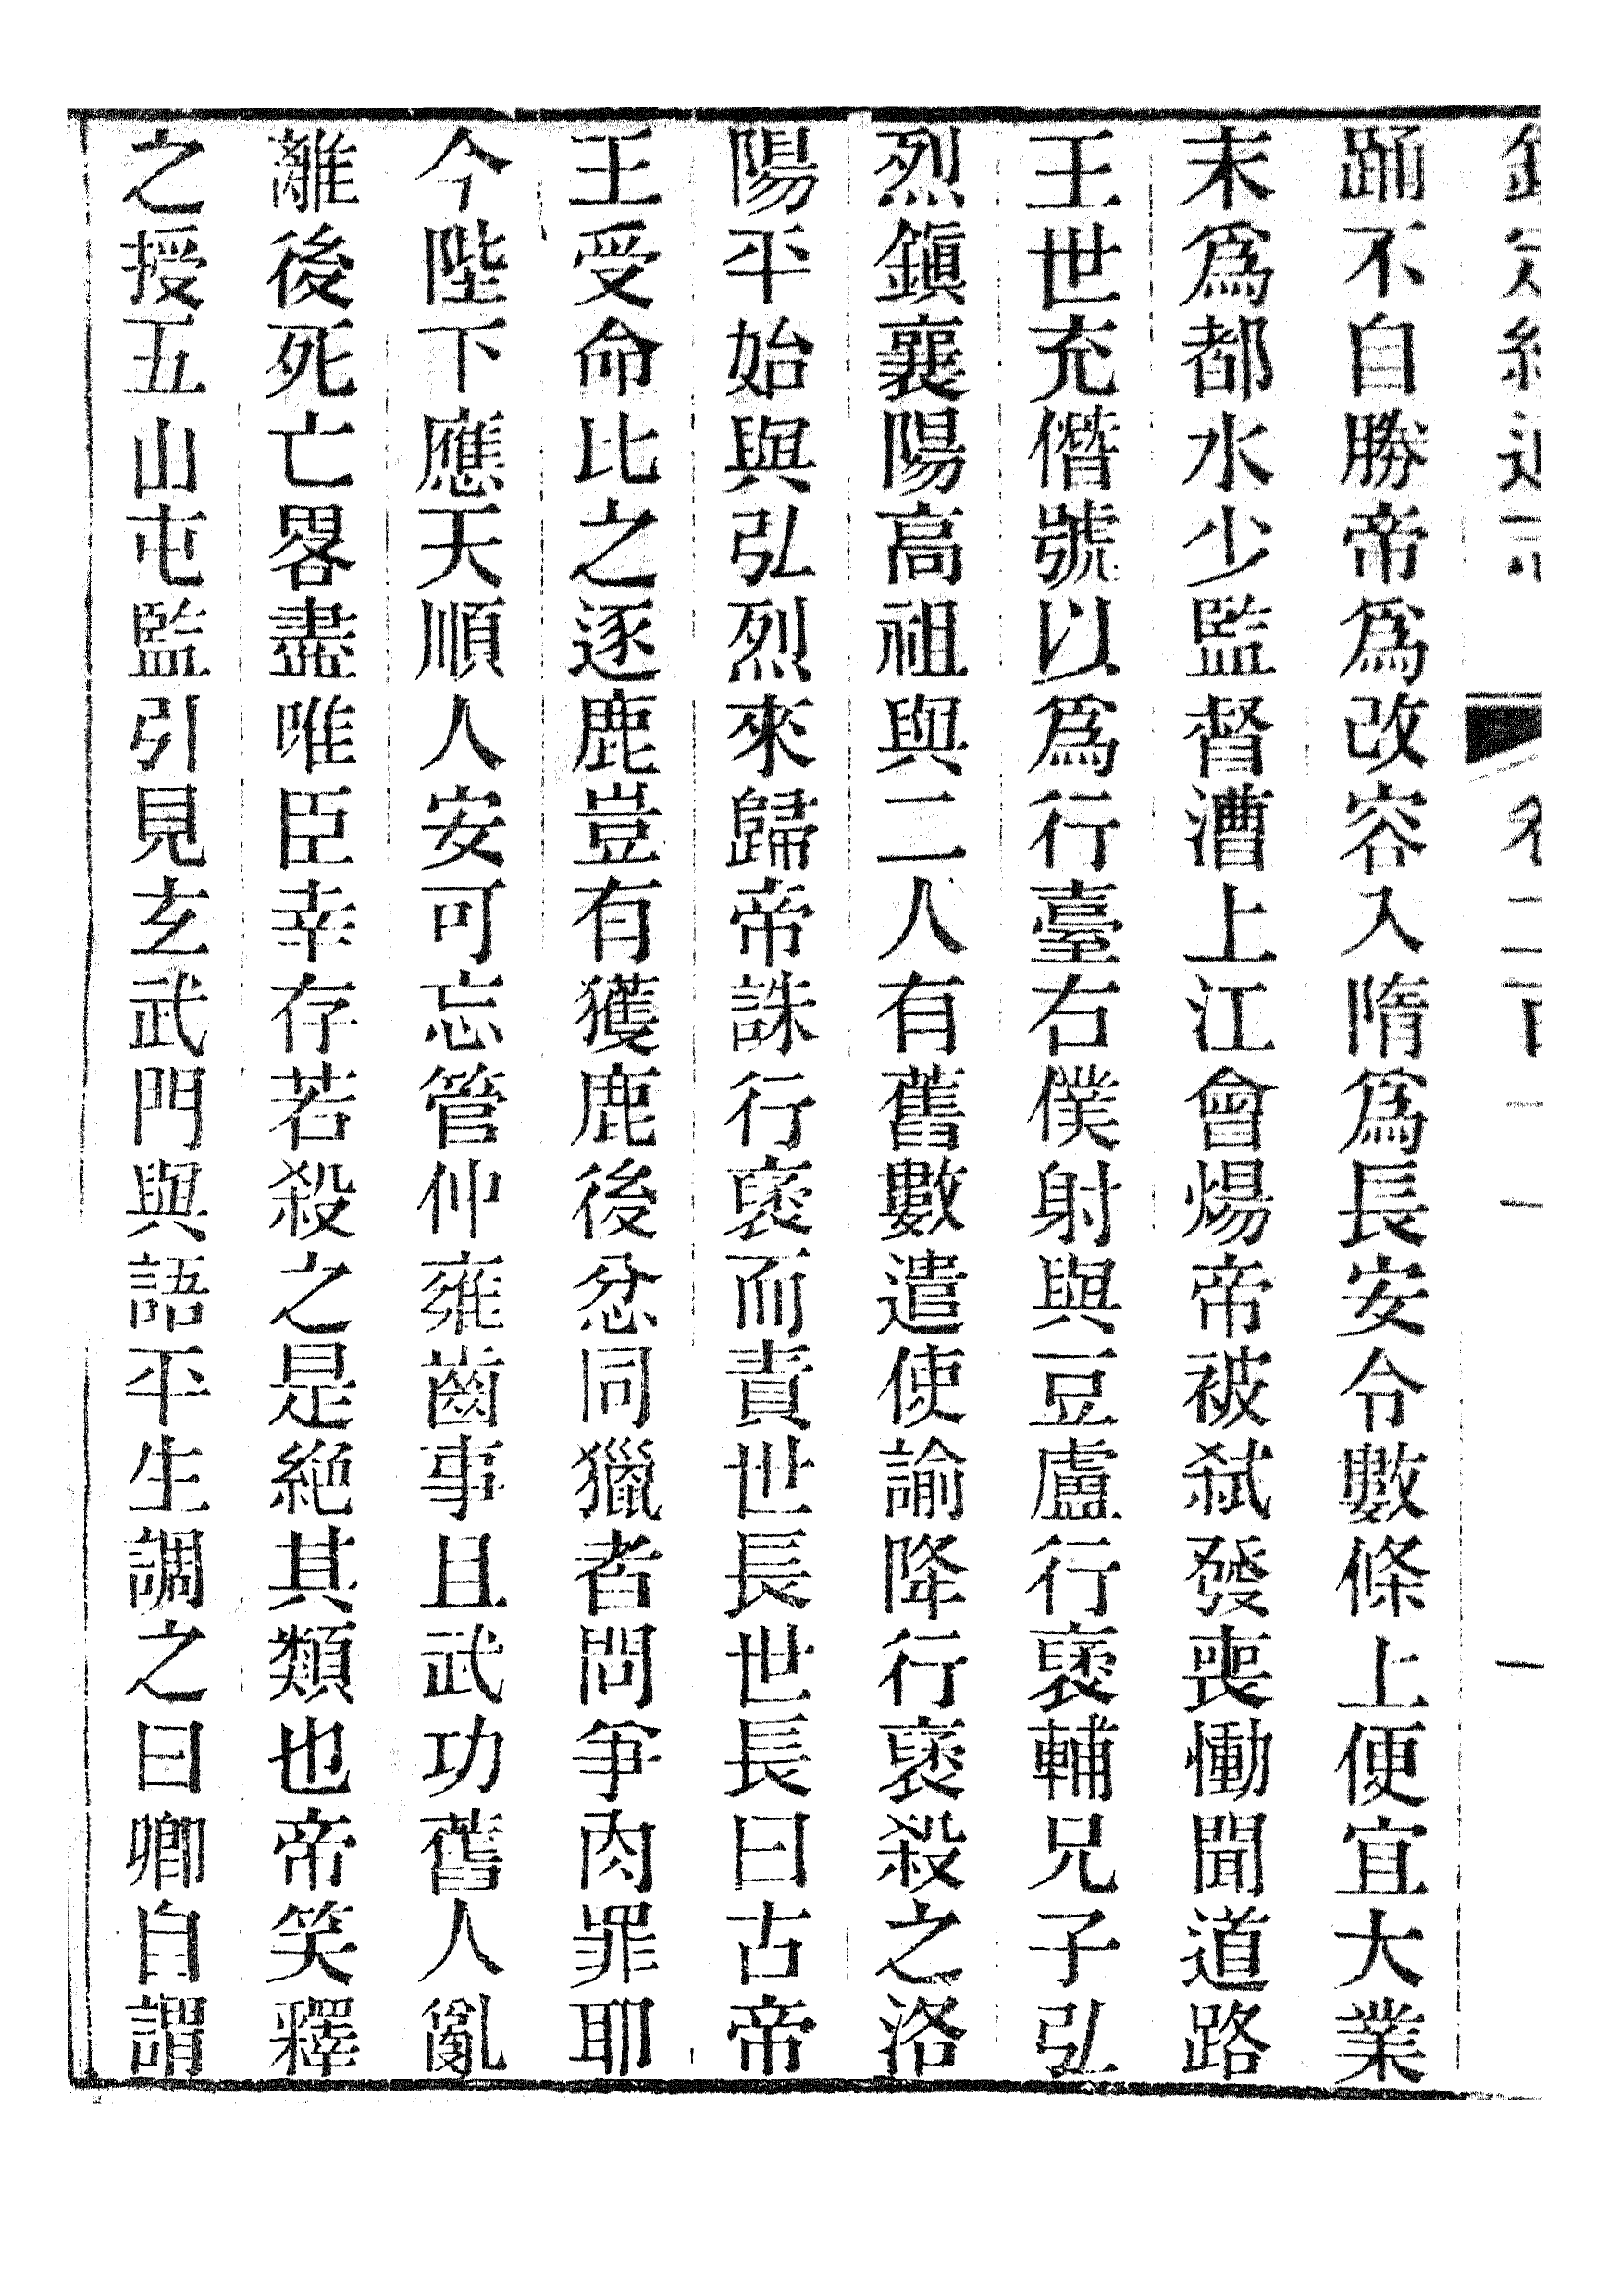 踊不自勝帝爲改容入隋爲長安令數條上便宜大業
末爲都水少監督漕上江會煬帝被弑發喪慟聞道路
王世充僭號以爲行臺右僕射與豆盧行襃輔兄子弘
烈鎭襄陽高祖與二人有舊數遣使諭降行襃殺之洛
陽平始與弘烈來歸帝誅行襃而責世長世長曰古帝
王受命比之逐鹿豈有獲鹿後忿同獵者問爭肉罪耶
今陛下應天順人安可忘管仲雍齒事且武功舊人亂
離後死亡畧盡唯臣幸存若殺之是絕其類也帝笑釋
之授五山屯監引見玄武門與語平生調之曰卿自謂